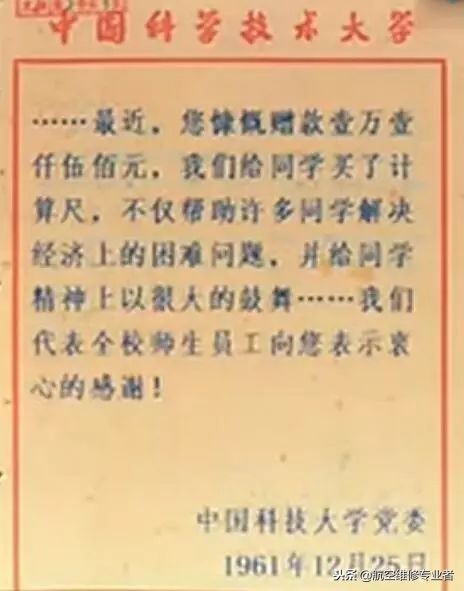 中国科学技术大学
……最近，您慷慨赠款壹万壹
仟伍佰元，我们给同学买了计
算尺，不仅帮助许多同学解决
经济上的困难问题，并给同学
精神上以很大的鼓舞……我们
代表全校师生员工向您表示衷
心的感谢！
中国科技大学党委
1961年12月25日
头条@航空维修专业者